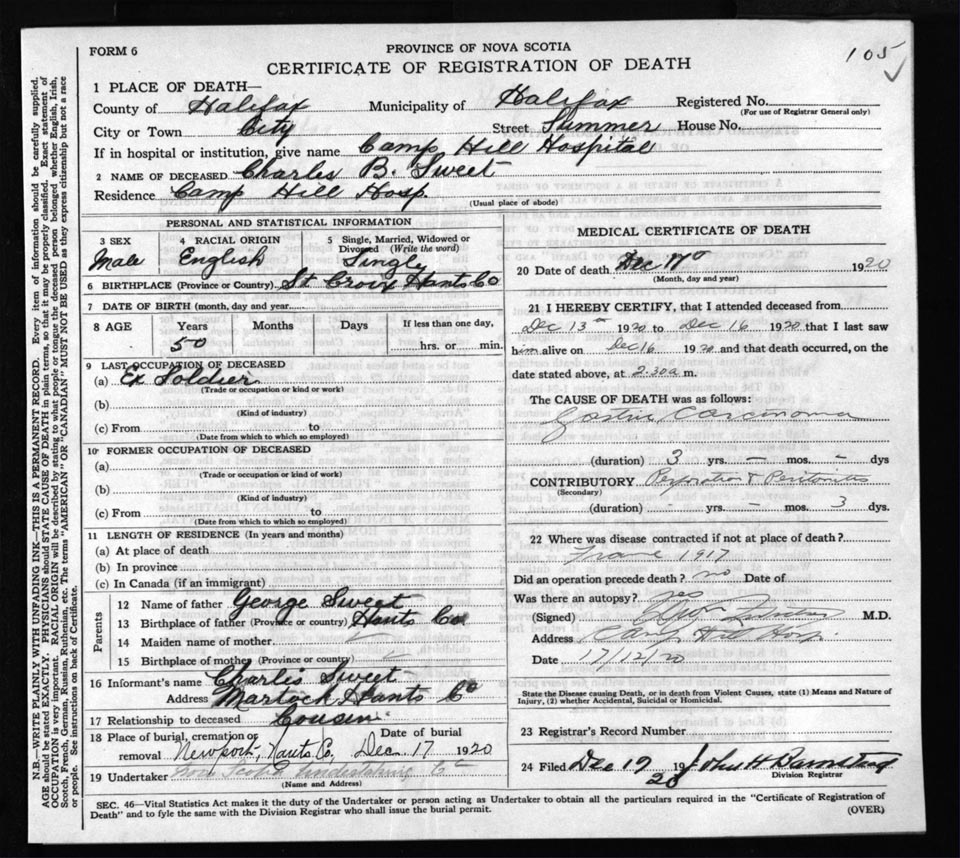 FORM 6
PROVINCE OF NOVA SCOTIA
105
CERTIFICATE OF REGISTRATION OF DEATH
1 PLACE OF DEATH—
County of Halifax Municipality of Halifax Registered No.
(For use of Registrar General only)
City or Town City Street Summer House No.
If in hospital or institution, give name Camp Hill Hospital
2 NAME OF DECEASED Charles B. Sweet
Residence Camp Hill Hosp.
(Usual place of abode)
PERSONAL AND STATISTICAL INFORMATION
3 SEX 4 RACIAL ORIGIN 5 Single, Married, Widowed or Divorced (Write the word)
Male English Single
6 BIRTHPLACE (Province or Country) St Croix Hants Co
7 DATE OF BIRTH (month, day and year)
8 AGE Years Months Days If less than one day,
50 hrs. or min.
9 LAST OCCUPATION OF DECEASED
(a) Ex Soldier
(Trade or occupation or kind or work)
(b)
(Kind of industry)
(c) From to
(Date from which to which so employed)
10 FORMER OCCUPATION OF DECEASED
(a)
(Trade or occupation or kind of work)
(b)
(Kind of industry)
(c) From to
(Date from which to which so employed)
11 LENGTH OF RESIDENCE (In years and months)
(a) At place of death
(b) In province
(c) In Canada (if an immigrant)
Parents
12 Name of father George Sweet
13 Birthplace of father (Province or country) Hants Co
14 Maiden name of mother
15 Birthplace of mother (Province or country)
16 Informant's name Charles Sweet
Address Martock Hants Co
17 Relationship to deceased Cousin
18 Place of burial, cremation or removal Date of burial
Newport, Hants Co, Dec 17 1920
19 Undertaker Nova Scotia Undertaking Co
(Name and Address)
MEDICAL CERTIFICATE OF DEATH
20 Date of death Dec 17 1920
(Month, day and year)
21 I HEREBY CERTIFY, that I attended deceased from
Dec 13 1920 to Dec 16 1920 that I last saw
him alive on Dec 16 1920 and that death occurred, on the
date stated above, at 2.30 a. m.
The CAUSE OF DEATH was as follows:
Gastric Carcinoma
(duration) 3 yrs. — mos. — dys
CONTRIBUTORY Perforation & Peritonitis
(Secondary)
(duration) - yrs. — mos. 3 dys.
22 Where was disease contracted if not at place of death?
France 1917
Did an operation precede death? no Date of
Was there an autopsy? yes
(Signed) M.D.
Address Camp Hill Hosp.
Date 17/12/20
State the Disease causing Death, or in death from Violent Causes, state (1) Means and Nature of
Injury, (2) whether Accidental, Suicidal or Homicidal.
23 Registrar's Record Number
24 Filed Dec 19 19 20 John H Barnstead
Division Registrar
SEC. 46—Vital Statistics Act makes it the duty of the Undertaker or person acting as Undertaker to obtain all the particulars required in the "Certificate of Registration of
Death" and to fyle the same with the Division Registrar who shall issue the burial permit.
(OVER)
N.B.—WRITE PLAINLY WITH UNFADING INK—THIS IS A PERMANENT RECORD. Every item of information should be carefully supplied.
AGE should be stated EXACTLY. PHYSICIANS should STATE CAUSE OF DEATH in plain terms, so that it may be properly classified. Exact statement of
OCCUPATION is very important. RACIAL ORIGIN will be described by stating to what people or tongue the deceased person belonged whether English, Irish,
Scotch, French, German, Russian, Ruthenian, etc. The terms "AMERICAN" OR "CANADIAN" MUST NOT BE USED as they express citizenship but not a race
or people. See instructions on back of Certificate.